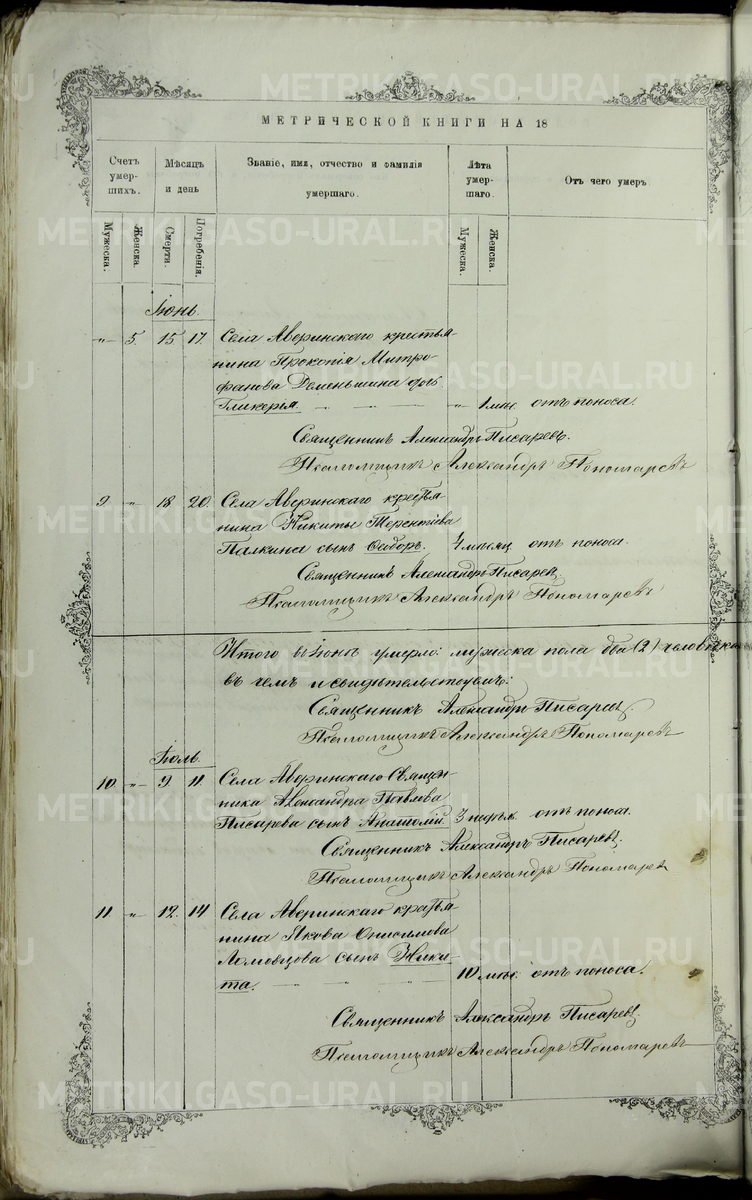 МЕТРИЧЕСКОЙ КНИГИ НА 18
Счетъ умер- шихъ.
Мѣсяцъ и день
Званіе, имя, отчество и фамилія умершаго.
Лѣта умер- шаго.
Отъ чего умеръ
Мужеска.
Женска.
Смерти.
Погребенія.
Мужеска.
Женска.
Іюнь.
„ 5 15 17. Села Аверинскаго крестья-
нина Прокопія Митро-
фанова Деменьшина дочь
Гликерія. „ 1 мѣс. отъ поноса.
Священникъ Александръ Писаревъ.
Псаломщикъ Александръ Пономаревъ
9. „ 18 20. Села Аверинскаго крестья-
нина Никиты Терентіева
Палкина сынъ Ѳедоръ. мѣсяц отъ поноса.
Священникъ Александръ Писаревъ
Псаломщикъ Александръ Пономаревъ
Итого въ іюнѣ умерло: мужеска пола два (2) человѣка
въ чемъ и свидѣтельствуемъ:
Священникъ Александръ Писаревъ.
Псаломщикъ Александръ Пономаревъ
Іюль.
10. „ 9 11. Села Аверинскаго Священ-
ника Александра Павлова
Писарева сынъ Анатолій. 3 недѣл. отъ поноса.
Священникъ Александръ Писаревъ.
Псаломщикъ Александръ Пономаревъ
11. „ 12. 14 Села Аверинскаго крестья-
нина Якова Онисимова
Ломовцова сынъ Ники-
та. 10 мѣс. отъ поноса.
Священникъ Александръ Писаревъ
Псаломщикъ Александръ Пономаревъ
METRIKI.GASO-URAL.RU